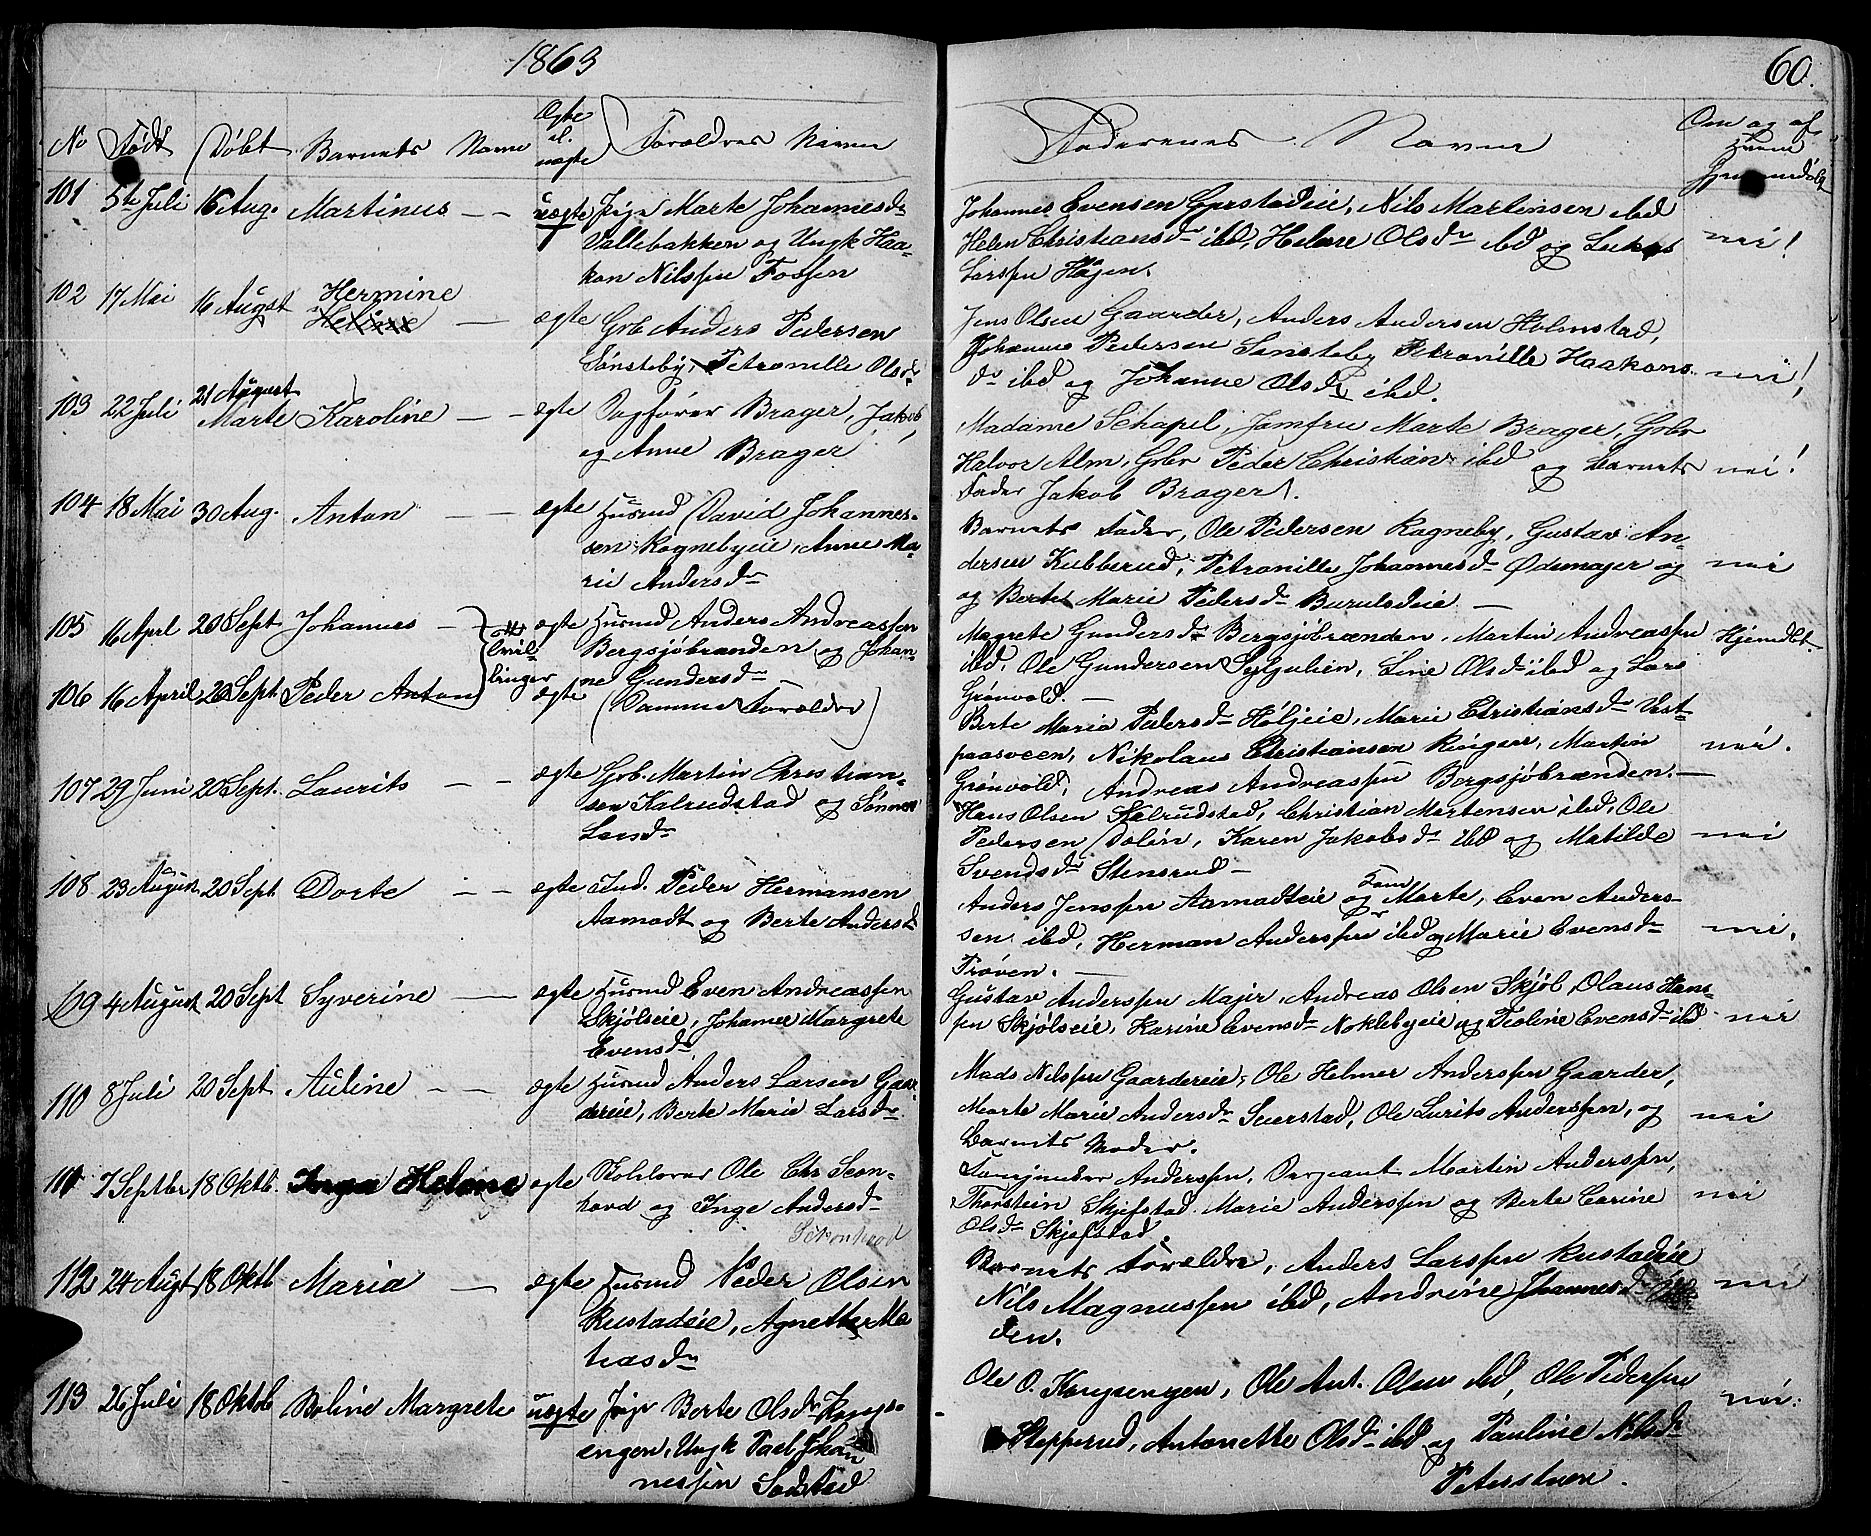 1863
60.
No Født Døbt Barnets Navn Ægte el. uægte Forældres Navn
Faderenes Navne
Om og af Hvem Hjemmedøbt
101 5te Juli 16 Aug. Martinus — — uægte Pige Marte Johannesdr
Vallebakken og Ungk Haa-
kon Nilssen Fossen
Johannes Evensen Gjerstadeie, Nils Martinsen ibd
Helen Christiansdr ibd, Helene Olsdr ibd og
Larssen Høgen.
nei!
102 17 Mai 16 August Hermine
Heline — ægte Gbr Anders Pedersen
Sønsteby, Petronille Olsdr
Jens Olsen Gaarder, Anders Andersen Holmstad,
Johannes Pedersen Sønsteby Petronille Haakons-
dr ibd og Johanne Olsdr ibd.
nei!
103 22 Juli 21 August
Marte Karoline — — ægte Dagfører Brager, Jakob
og Anne Brager
Madame Schapel, Jomfru Marte Brager, Gbr
Halvor Alm, Gbr Peder Christian ibd og Barnets
Fader Jakob Brager.
nei!
104 18 Mai 30 Aug. Anton — — ægte Husmd David Johannes-
sen Rognebyeie, Anne Ma-
rie Andersdr
Barnets Fader, Ole Pedersen Rogneby, Gustav An-
dersen Kubberud, Petronille Johannesdr Ødemager og
og Berte Marie Pedersdr Burulseie —
nei
105 16 Aprl 20 Sept Johannes — ægte Husmd Anders Andreassen
Bergsjøbrænden og Johan-
ne Gundersdr
tvil-
linger
Magrete Gundersdr Bergsjøbrænden, Martin Andreassen
ibd, Ole Gundersen, Line Olsdr ibd og Lars
Grønvold. —
Hjemdbt
106 16 April 20 Sept Peder Anton ægte (Samme Forældre)
Berte Maria Pedersdr Høljeie, Marie Christiansdr Vest-
paasveen, Nikolaus Christiansen Ringen, Martin
Grønvold, Andreas Andreassen Bergsjøbrænden. —
nei.
107 29 Juni 20 Sept. Laurits — — ægte Gbr. Martin Christian-
sen Kalrudstad og Sønnev
Larsdr
Hans Olsen Kalrudstad, Christian Martensen ibd, Ole
Pedersen Dølin, Karen Jakobsdr ibd og Matilde
Svendsdr Stensrud —
nei
108 23 August 20 Sept. Dorte — — ægte Ind. Peder Hermansen
Aamodt og Berte Andersdr
Anders Jenssen Aamodteie og Marte, Even Anders-
sen ibd, Herman Anderssen ibd og Marie Evensdr
Prøven. —
nei.
109 4 August 20 Sept Syverine — ægte Husmd Even Andreassen
Skjølseie, Johanne Margrete
Evensdr
Gustav Anderssen Majer, Andreas Olsen Skjøl, Olaus Hans-
sen Skjølseie, Karine Evensdr Noklebyeie og Teoline Evensdr ibd
nei
110 8 Juli 20 Sept Auline — — ægte Husmd Anders Larsen Gaar-
dereie, Berte Marie Larsdr
Mads Nilssen Gaardereie, Ole Helmer Anderssen Gaarder,
Marte Marie Andersdr Suerstad, Ole Lurits Anderssen, og
Barnets Moder.
nei
111 7 Septbr 18 Oktb. Inga Helene ægte Skolelærer Ole Chr Seon-
hovd og Inge Andersdr
Anderssen, Sergeant Martin Anderssen,
Thorstein Skjefstad, Marie Anderssen og Berte Carine
Olsdr Skjefstad.
nei
112 24 Augt 18 Oktb Maria — ægte Husmd Peder Olsen
Rustadeie, Agnethe Ma-
tiasdr
Barnets Forældre, Anders Larssen Rustadeie
Nils Magnussen ibd, Andrine Johannesdr
den.
nei
113 26 Juli 18 Oktob Boline Margrete uægte Pige Berte Olsdr Kongs-
engen, Ungk Paul Johan-
nessen Sandstad
Ole O. Kongsengen, Ole Ant. Olsen ibd, Ole Pedersen
Stepperud, Antonette Olsdr ibd og Pauline Nilsdr
Peterstuen.
nei.